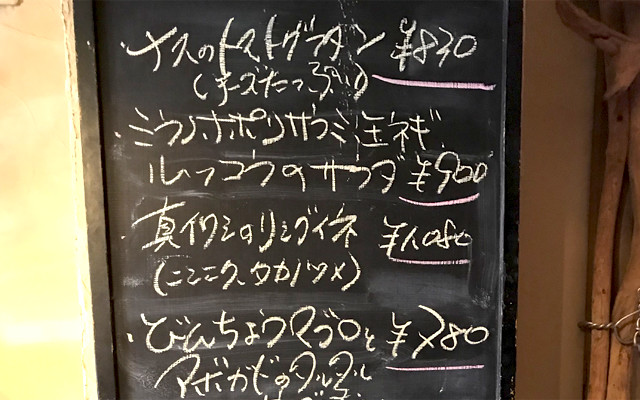 ・ナスのトマトグラタン ¥830
(チーズたっぷり)
・ミラノホポリサラミ玉ネギ
ルッコラのサラダ ¥900
・真イワシのリングイネ ¥1,080
(ニンニク、タカノツメ)
・びんちょうマグロと ¥780
アボガドのタルタル